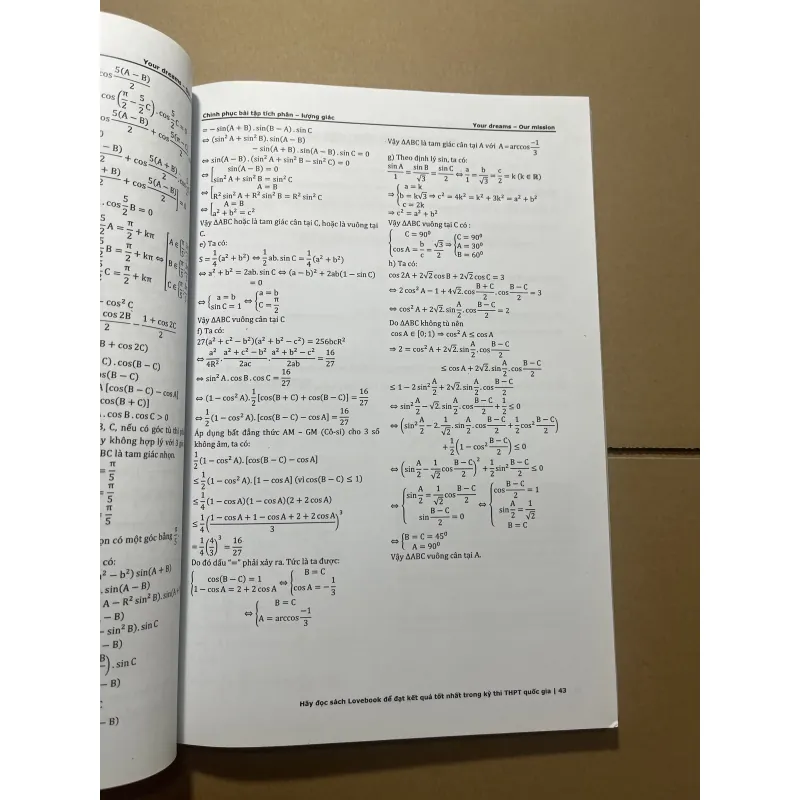 Your dreams –
cos 5(A − B)/2
cos(π/2 − 5/2 C).cos 5
5(A − B)/2 + cos 5
− B)/2 + cos 5(A + B)
+ B)/2 + cos 5(A − B)/2
.cos 5/2 B = 0
A = π/2 + kπ
B = π/2 + kπ ⇔
C = π/2 + kπ
− cos² C
cos 2B/2 − 1 + cos 2C/2
B + cos 2C)
C).cos(B − C)
os(B − C)
A [cos(B − C) − cos A]
cos(B + C)]
.cos B.cos C > 0
B, C, nếu có góc tù thì
y không hợp lý với 3
BC là tam giác nhọn.
= π/5
= π/5
= π/5
ọn có một góc bằng
có:
² − b²) sin(A + B)
.sin(A − B)
A − R² sin² B).sin(A
− B)
− sin² B).sin C
− B)
).sin C
− B)
− B)
Chinh phục bài tập tích phân – lượng giác
Your dreams – Our mission
= − sin(A + B).sin(B − A).sin C
⇔ (sin² A + sin² B).sin(A − B)
− sin(A + B).sin(A − B).sin C = 0
⇔ sin(A − B).(sin² A + sin² B − sin² C) = 0
⇔ [ sin(A − B) = 0
sin² A + sin² B = sin² C
⇔ [ A = B
R² sin² A + R² sin² B = R² sin² C
⇔ [ A = B
a² + b² = c²
Vậy ΔABC hoặc là tam giác cân tại C, hoặc là vuông tại
C.
e) Ta có:
S = 1/4 (a² + b²) ⇔ 1/2 ab.sin C = 1/4 (a² + b²)
⇔ a² + b² = 2ab.sin C ⇔ (a − b)² + 2ab(1 − sin C)
= 0
⇔ { a = b
sin C = 1 ⇔ { a = b
C = π/2
Vậy ΔABC vuông cân tại C
f) Ta có:
27(a² + c² − b²)(a² + b² − c²) = 256bcR²
⇔ a²/4R² . a² + c² − b²/2ac . a² + b² − c²/2ab = 16/27
⇔ sin² A.cos B.cos C = 16/27
⇔ (1 − cos² A).1/2 [cos(B + C) + cos(B − C)] = 16/27
⇔ 1/2 (1 − cos² A).[cos(B − C) − cos A] = 16/27
Áp dụng bất đẳng thức AM – GM (Cô-si) cho 3 số
không âm, ta có:
1/2 (1 − cos² A).[cos(B − C) − cos A]
≤ 1/2 (1 − cos² A).[1 − cos A] (vì cos(B − C) ≤ 1)
≤ 1/4 (1 − cos A)(1 − cos A)(2 + 2 cos A)
≤ 1/4 (1 − cos A + 1 − cos A + 2 + 2 cos A/3)³
= 1/4 (4/3)³ = 16/27
Do đó dấu "=" phải xảy ra. Tức là ta được:
{ cos(B − C) = 1
1 − cos A = 2 + 2 cos A ⇔ { B = C
cos A = − 1/3
⇔ { B = C
A = arccos −1/3
Vậy ΔABC là tam giác cân tại A với A = arccos −1/3
g) Theo định lý sin, ta có:
sin A/1 = sin B/√3 = sin C/2 ⇔ a/1 = b/√3 = c/2 = k (k ∈ ℝ)
⇒ { a = k
b = k√3 ⇒ c² = 4k² = k² + 3k² = a² + b²
c = 2k
⇒ c² = a² + b²
Vậy ΔABC vuông tại C có :
{ C = 90⁰
cos A = b/c = √3/2 ⇒ { C = 90⁰
A = 30⁰
B = 60⁰
h) Ta có:
cos 2A + 2√2 cos B + 2√2 cos C = 3
⇔ 2 cos² A − 1 + 4√2.cos B + C/2 .cos B − C/2 = 3
⇔ cos² A + 2√2.sin A/2 .cos B − C/2 = 2
Do ΔABC không tù nên
cos A ∈ [0; 1) ⇒ cos² A ≤ cos A
⇒ 2 = cos² A + 2√2.sin A/2 .cos B − C/2
≤ cos A + 2√2.sin A/2 .cos B − C/2
≤ 1 − 2 sin² A/2 + 2√2.sin A/2 .cos B − C/2
⇔ sin² A/2 − √2.sin A/2 .cos B − C/2 + 1/2 ≤ 0
⇔ (sin² A/2 − 2.1/√2 .sin A/2 .cos B − C/2 + 1/2 cos² B − C/2)
+ 1/2 (1 − cos² B − C/2) ≤ 0
⇔ (sin A/2 − 1/√2 cos B − C/2)² + 1/2 sin² B − C/2 ≤ 0
⇔ { sin A/2 = 1/√2 cos B − C/2
sin B − C/2 = 0 ⇔ { cos B − C/2 = 1
sin A/2 = 1/√2
B = C
⇔ { B = C = 45⁰
A = 90⁰
Vậy ΔABC vuông cân tại A.
Hãy đọc sách Lovebook để đạt kết quả tốt nhất trong kỳ thi THPT quốc gia | 43